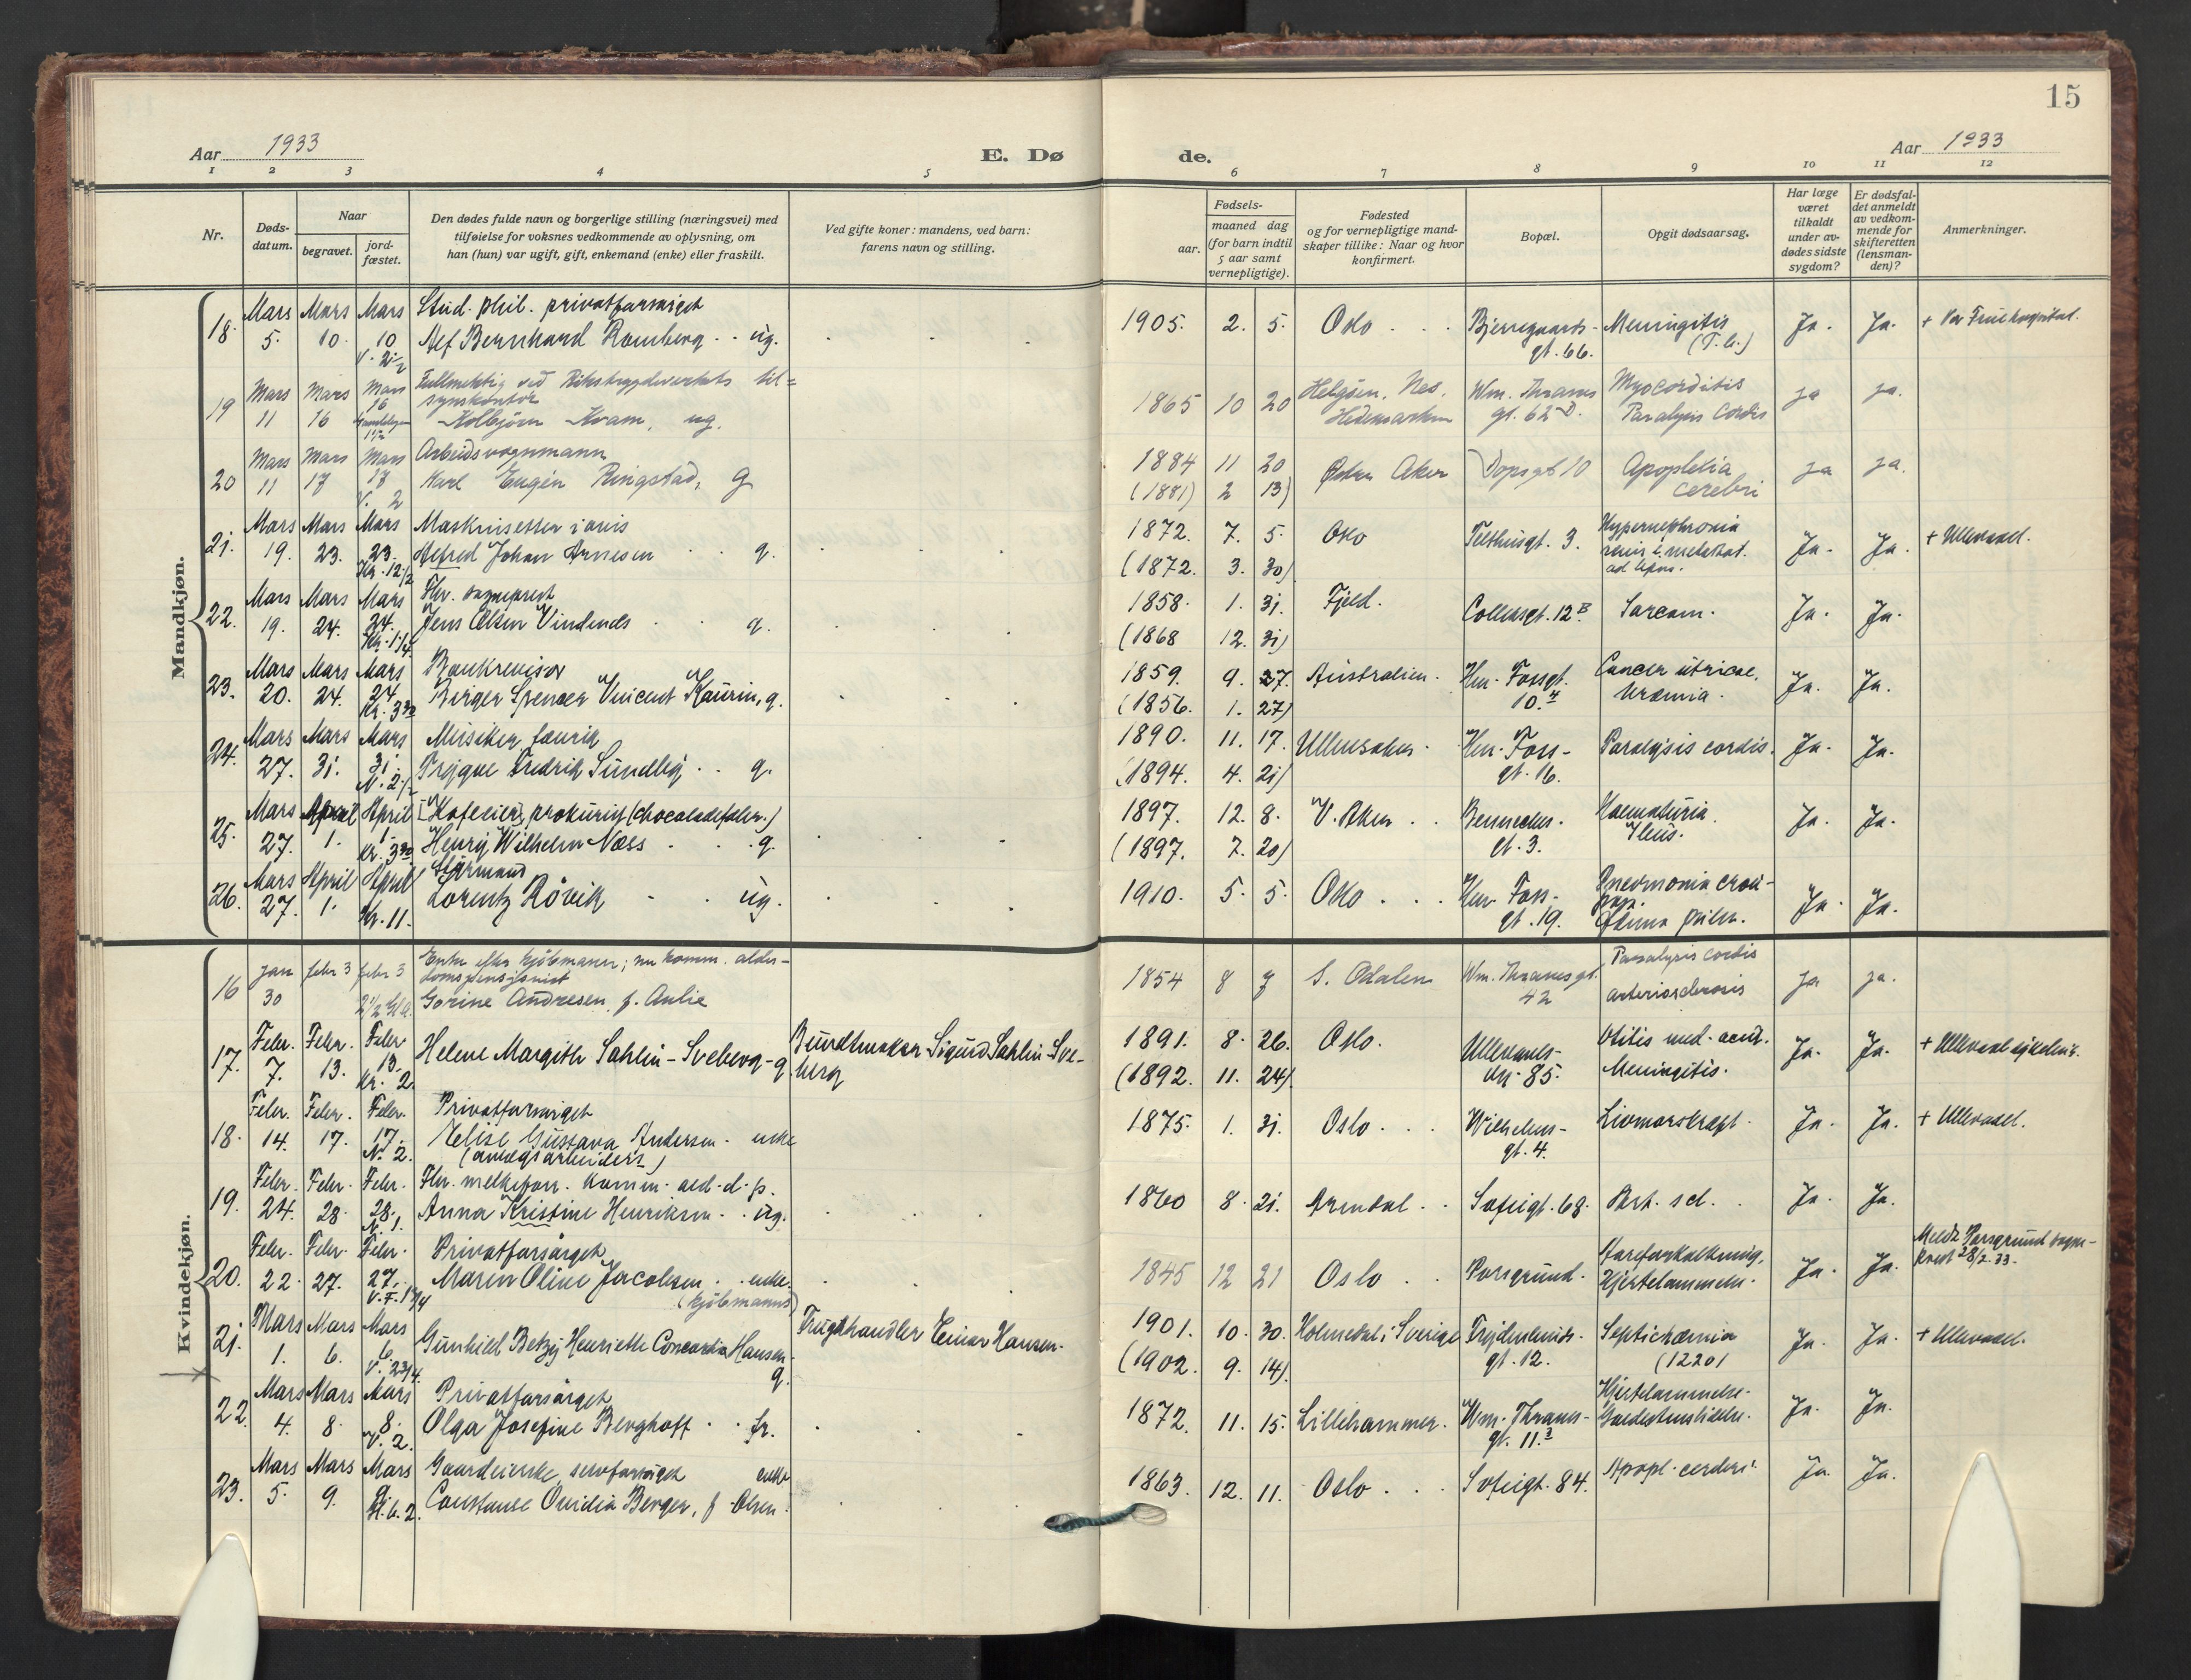 15
Aar 1933
E. Dø
de.
Aar 1933
1 2 3 4 5 6 7 8 9 10 11 12
Nr.
Døds-
datum.
Naar
begravet.
jord-
fæstet.
Den dødes fulde navn og borgerlige stilling (næringsvei) med
tilføielse for voksnes vedkommende av oplysning, om
han (hun) var ugift, gift, enkemand (enke) eller fraskilt.
Ved gifte koner: mandens, ved barn:
farens navn og stilling.
Fødsels-
aar.
maaned dag
(for barn indtil
5 aar samt
vernepligtige).
Fødested
og for vernepligtige mand-
skaper tillike: Naar og hvor
konfirmert.
Bopæl.
Opgit dødsaarsag.
Har læge
været
tilkaldt
under av-
dødes sidste
sygdom?
Er dødsfal-
det anmeldt
av vedkom-
mende for
skifteretten
(lensman-
den)?
Anmerkninger.
Mandkjøn.
Mars Mars Mars Stud. phil. privatforsørget
18. 5. 10. 10 Bernhard Romberg ug. 1905. 2. 5. Oslo Meningitis Ja. Ja.
V. 2½ gt. 66. (T.b.)
Mars Mars Mars Fullmektig ved Rikstrygdeverkets til-
synskontor
19 11 16 16 Kolbjørn Kvam, ug. 1865 10 20 Helgøen, Nes, Hedemarken Wm. Thranes gt. 62 D. Myocorditis Paralysis Cordis ja ja.
Mars Mars Mars Arbeidsvognmann
20 11 17 17 Karl Eugen Ringstad, g 1884 11 20 Østre Aker Dopsgt 10 Apoplexia cerebri ja ja.
V. 2 (1881) 2 13)
Mars Mars Mars
21. 19. 23. 23. Alfred Johan Arnesen g. 1872. 7. 5. Oslo Telthusgt. 3. Ja. Ja. + Ullevaal.
Kr. 12½ (1872. 3. 30)
Mars Mars Mars Fhv. sogneprest
22. 19. 24. 24. Jens Olsen Vindenes g. 1858. 1. 31. Fjeld. Colletsgt. 12 B. Sarcom. Ja. Ja.
Kr. 1¼ (1868 12. 31)
Mars Mars Mars Bankrevisor
23. 20. 24. 24. Birger Spencer Vincent Kaurin, g. 1859. 9. 27. Australien. Hm. Fossgt. 10. Cancer Uræmia. Ja. Ja.
Kr. 3 30 (1856. 1. 27)
Mars Mars Mars Musiker
24. 27. 31. 31. Trygve Fredrik Sundby g. 1890. 11. 17. Ullensaker. Hm. Foss- gt. 16. Paralysis cordis. Ja. Ja.
N. 2½ (1894. 4. 21)
Mars April April [Kafeeier], prokurist (chocoladefabr.)
25. 27. 1. 1. Henry Wilhelm Næss g. 1897. 12. 8. V. Aker Bennechs. gt. 3. Haematuria. Ileus. Ja. Ja.
Kr. 3 30 (1897. 7. 20)
Mars April April Styrmand
26. 27. 1. Kr. 11. Lorentz Rövik ug. 1910. 5. 5. Oslo Hm. Foss- gt. 19. Pneumonia crou- pos. Ja. Ja.
Kvindekjøn.
Enke efter kjøbmann; nu komm. alder-
domspensjonist
16 Jan 30 febr 3 febr 3 Gorine Andresen f. Aulie 1854 8 7 S. Odalen Wm. Thranes gt. 42 Paralysis cordis arteriosclerosis ja ja.
Febr. Febr. Febr.
17. 7. 13. 13. Helene Margith Sahlin-Sveberg g. Buntmaker Sigurd Sahlin Sve-
berg 1891. 8. 26. Oslo. Ullevaals- vn. 85. Otitis med. acut. Meningitis. Ja. Ja. + Ullevaal sykehus.
Kr. 2. (1892. 11. 24)
Febr. Febr. Febr. Privatforsørget
18. 14. 17. 17. Elise Gustava Andersen enke 1875. 1. 31. Oslo Wilhelms- gt. 4. Livmorskræft. Ja. Ja. + Ullevaal.
N. 2. (anlægsarbeiders)
Febr. Febr. Febr. Fhv. melkeforr. komm. ald. d. p.
19. 24. 28. 28. Anna Kristine Henriksen ug. 1860 8. 21. Arendal Sofiegt. 68. Art. scl. Ja. Ja.
N. 1.
Febr. Febr. Febr. Privatforsørget
20. 22. 27. 27. Maren Oline Jacobsen enke. 1845 12 21 Oslo Porsgrund. Aareforkalkning, Hjertelammelse. Ja. Ja. Meldt Porsgrund sogne-
prest 28/2 33.
(kjøbmanns)
Mars Mars Mars
21. 1. 6. 6. Gunhild Betzy Henriette Concordia Hansen g. Frugthandler Einar Hansen. 1901. 10. 30. Holmedal i Sverige Frydenlunds- gt. 12. Septichæmia (1220) Ja. Ja. + Ullevaal.
V. 2¾. (1902. 9. 14)
Mars Mars Mars Privatforsørget
22. 4. 8. 8. Olga Josefine Berghoff fr. 1872. 11. 15. Lillehammer. Wm. Thranes- gt. 11. Hjertelammelse. Galdestenslidelse. Ja. Ja.
V. 2.
Mars Mars Mars Gaardeierske, selvforsørget enke
23. 5. 9. Constanse Ovidia Berger, f. Olsen. 1863. 12. 11. Oslo Sofiegt. 84. Apopl. cerebri. Ja. Ja.